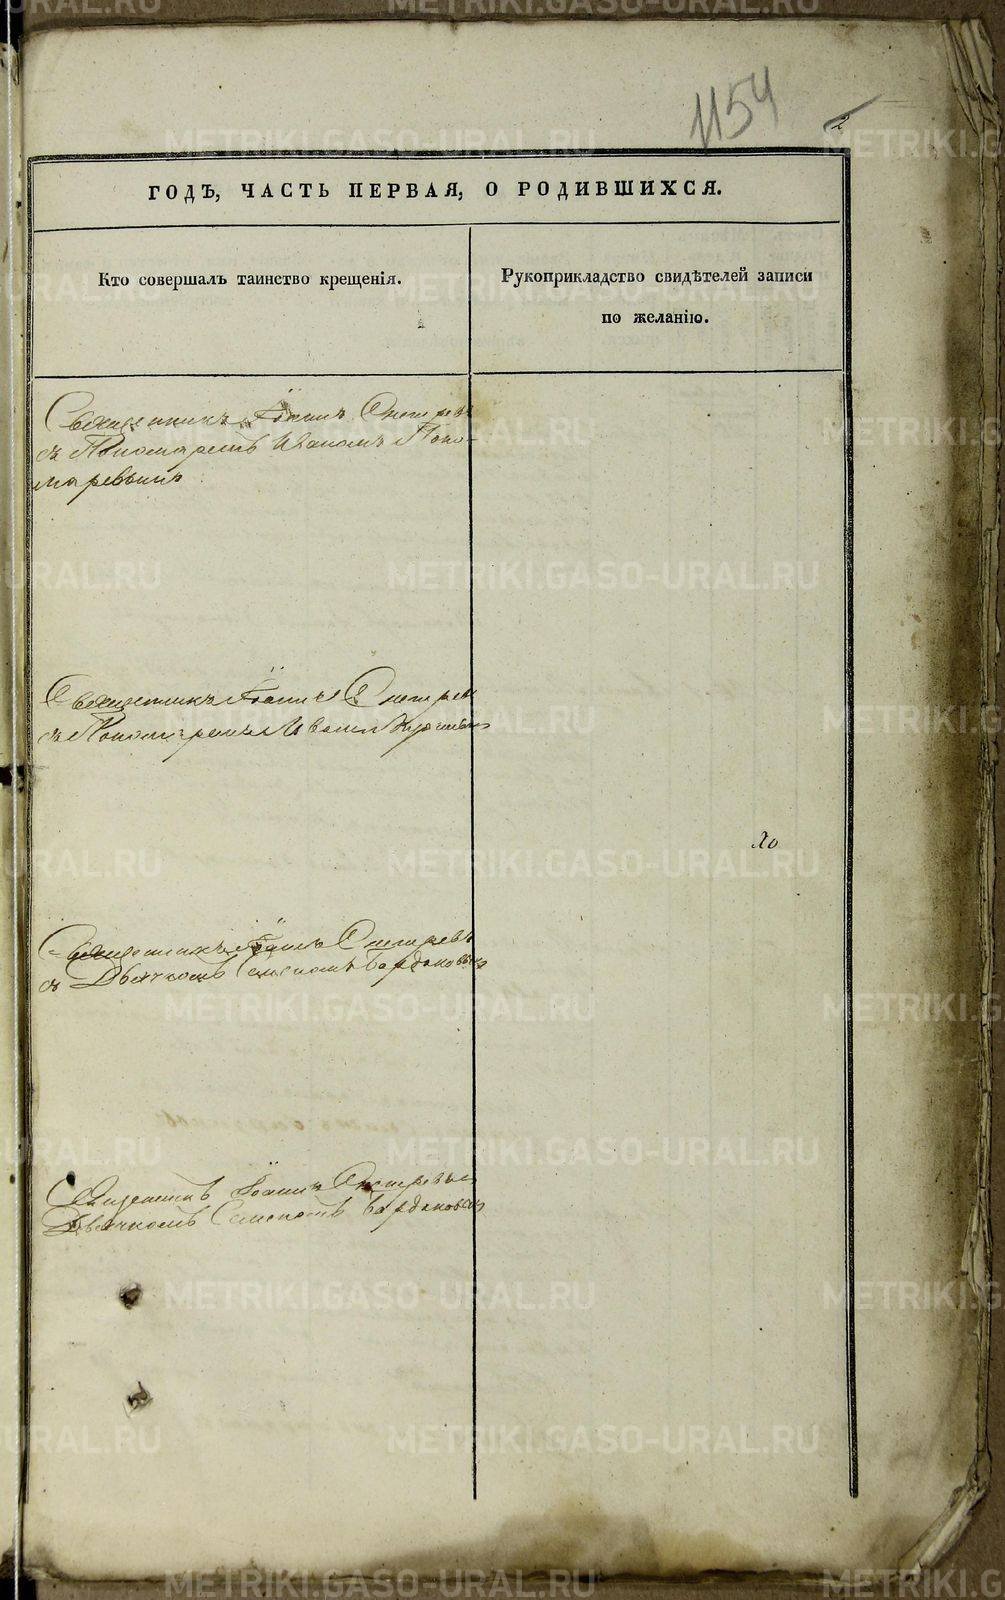 1154
2
ГОДЪ, ЧАСТЬ ПЕРВАЯ, О РОДИВШИХСЯ.
Кто совершалъ таинство крещенія.
Рукоприкладство свидѣтелей записи
по желанію.
Священникъ Іоаннъ
съ Пономаремъ Иваномъ Поно-
маревымъ
Священникъ Іоаннъ
съ Пономаремъ Иваномъ
Священникъ Іоаннъ
съ Дьячкомъ Семеномъ Бардаковымъ
Священникъ Іоаннъ
Дьячкомъ Семеномъ Бардаковымъ
METRIKI.GASO-URAL.RU